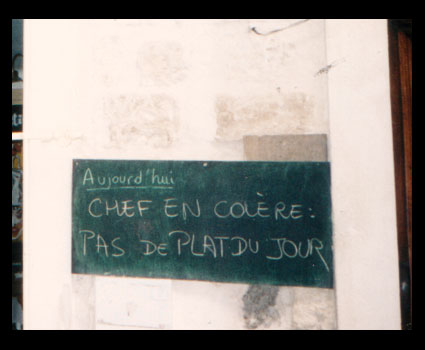 Aujourd'hui
CHEF EN COLÈRE:
PAS De PLAT DU JOUR